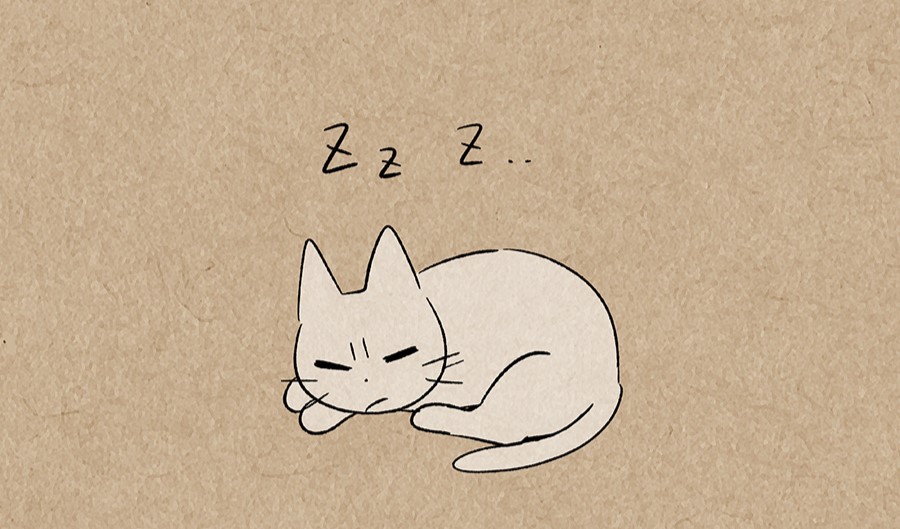 Z z Z..